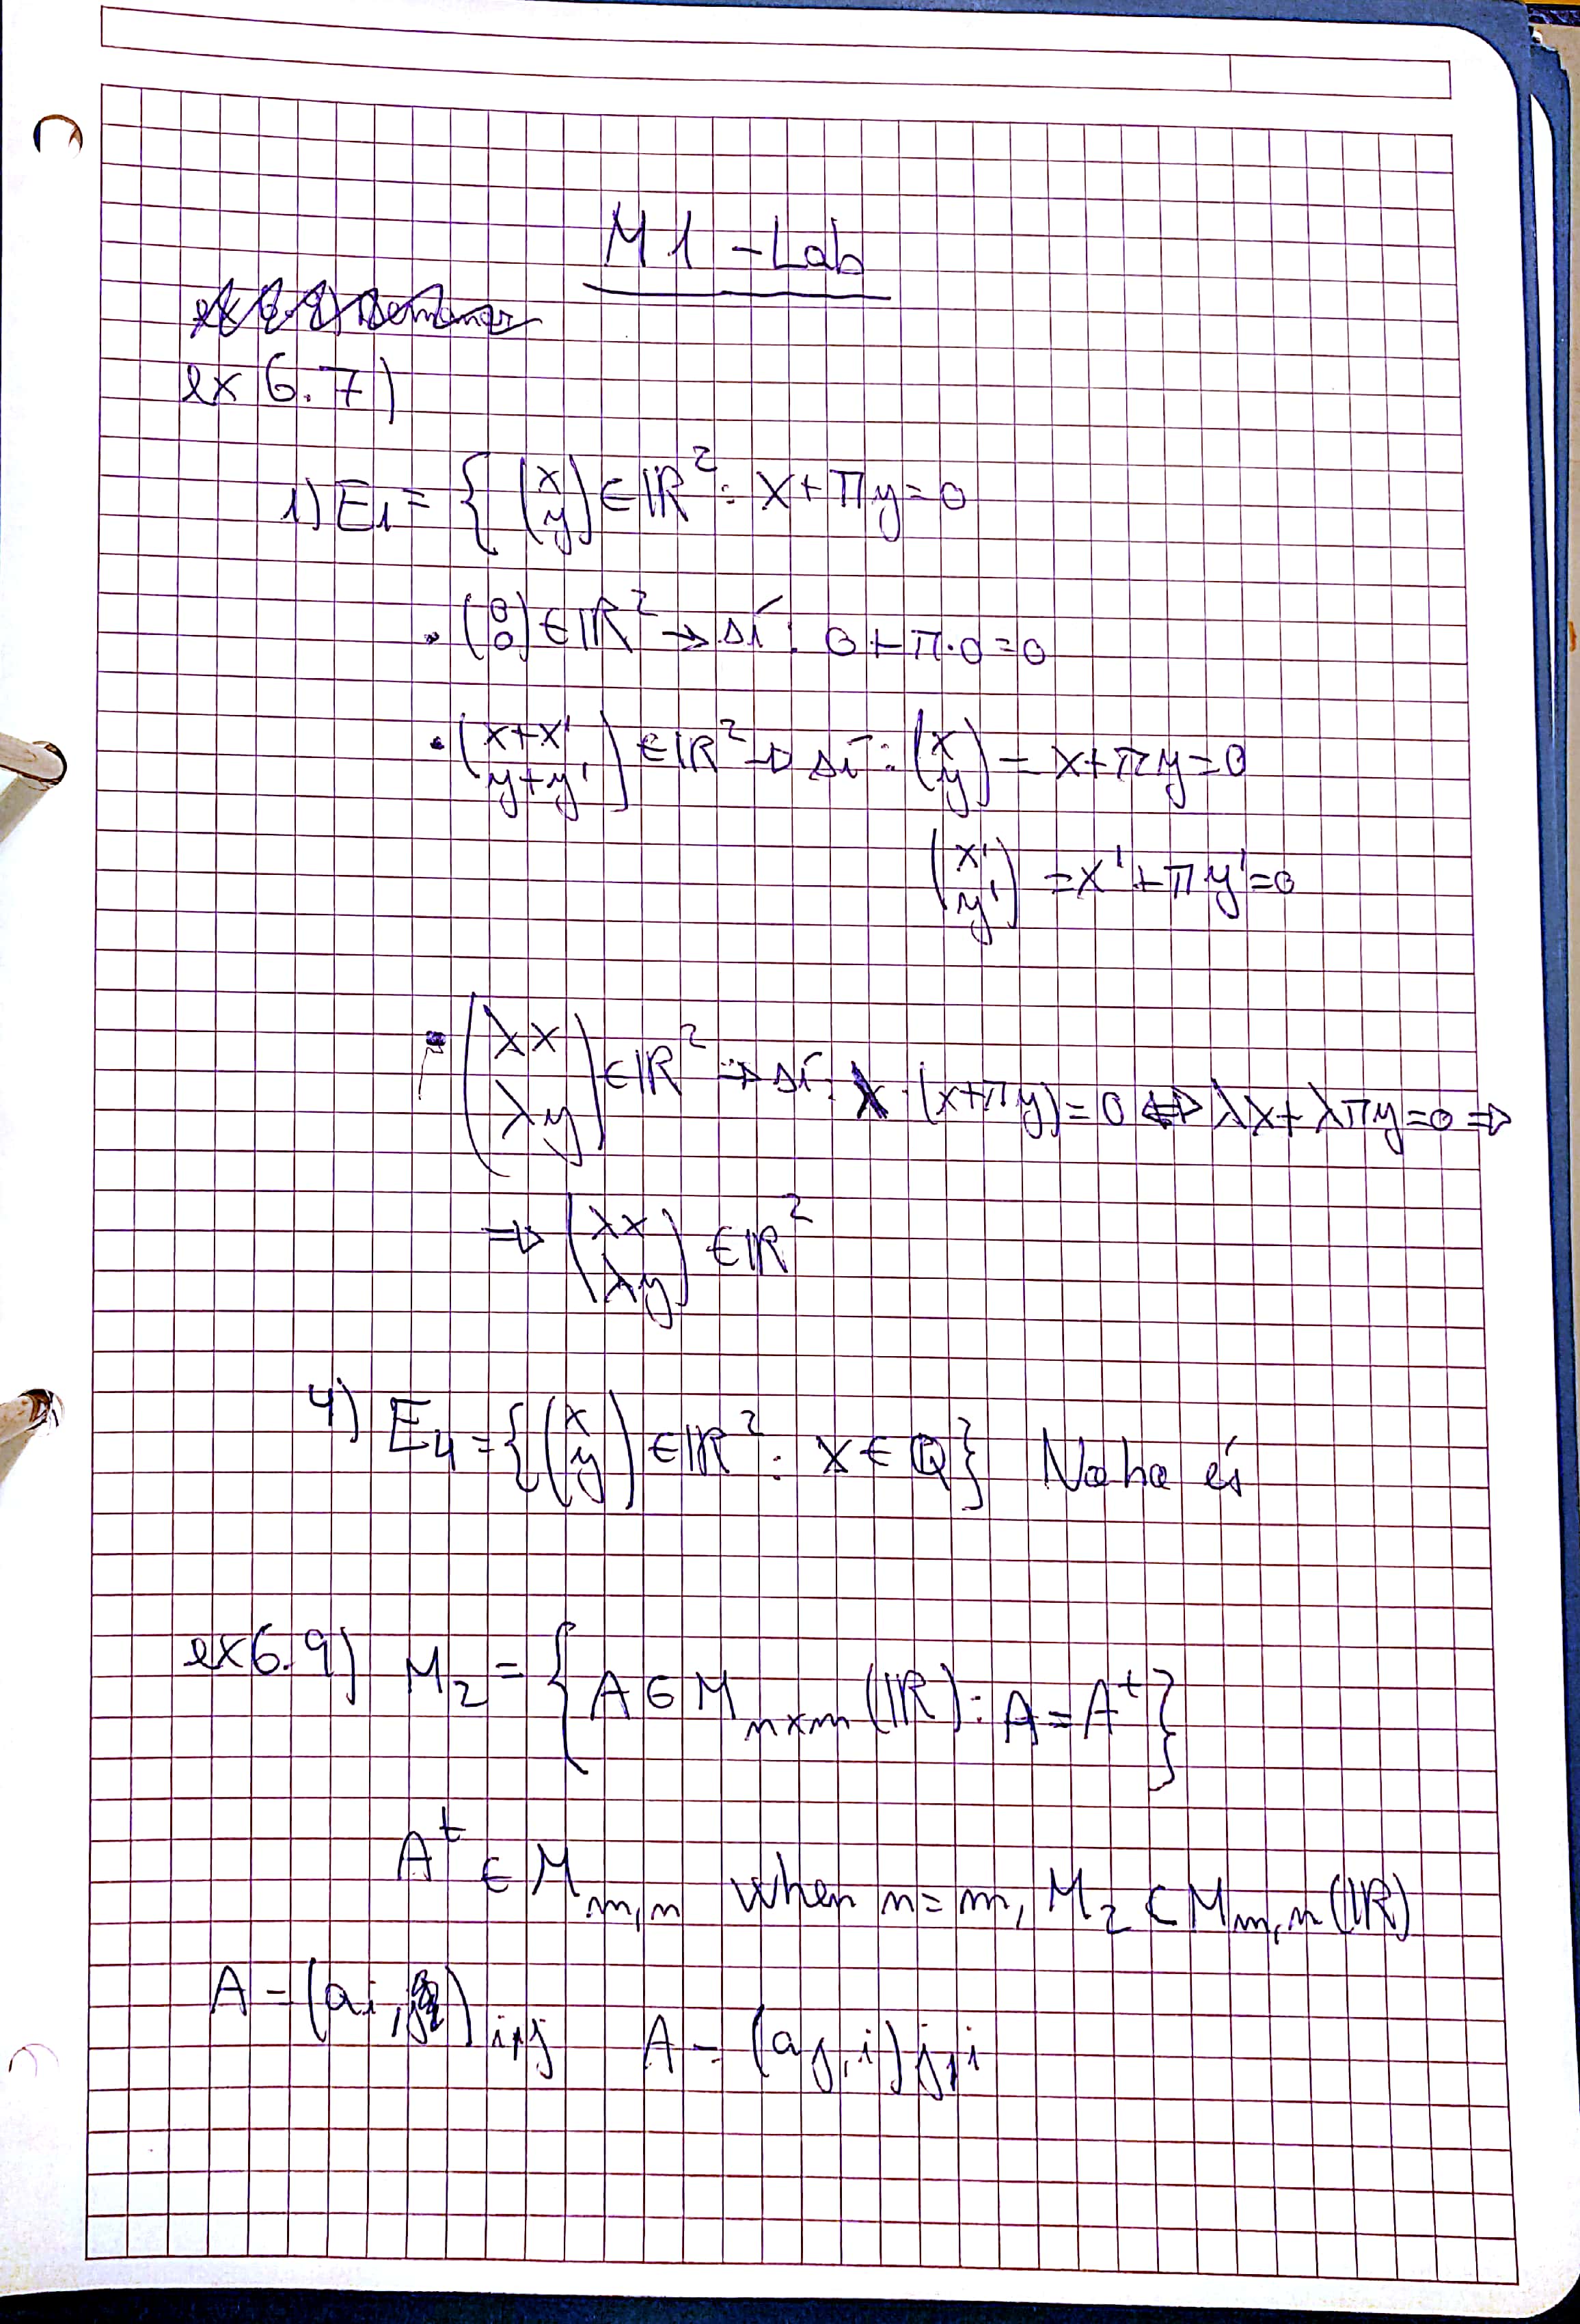 M1 - Lab
ex 6.7)
1) E₁ = { (x y) ∈ ℝ² : x + πy = 0
• (0 0) ∈ ℝ² → sí: 0 + π·0 = 0
• (x+x' y+y') ∈ ℝ² → sí: (x y) = x + πy = 0
(x' y') = x' + πy' = 0
• (λx λy) ∈ ℝ² → sí: λ·(x+πy) = 0 ⇔ λx + λπy = 0 ⇒
⇒ (λx λy) ∈ ℝ²
4) E₄ = { (x y) ∈ ℝ² : x ∈ ℚ } No ho és
ex 6.9) M₂ = { A ∈ M_{n×m} (ℝ) : A = Aᵗ }
Aᵗ ∈ M_{m,n} when n = m, M₂ ⊂ M_{m,n} (ℝ)
A = (a_{i,j})_{i,j} A = (a_{j,i})_{j,i}